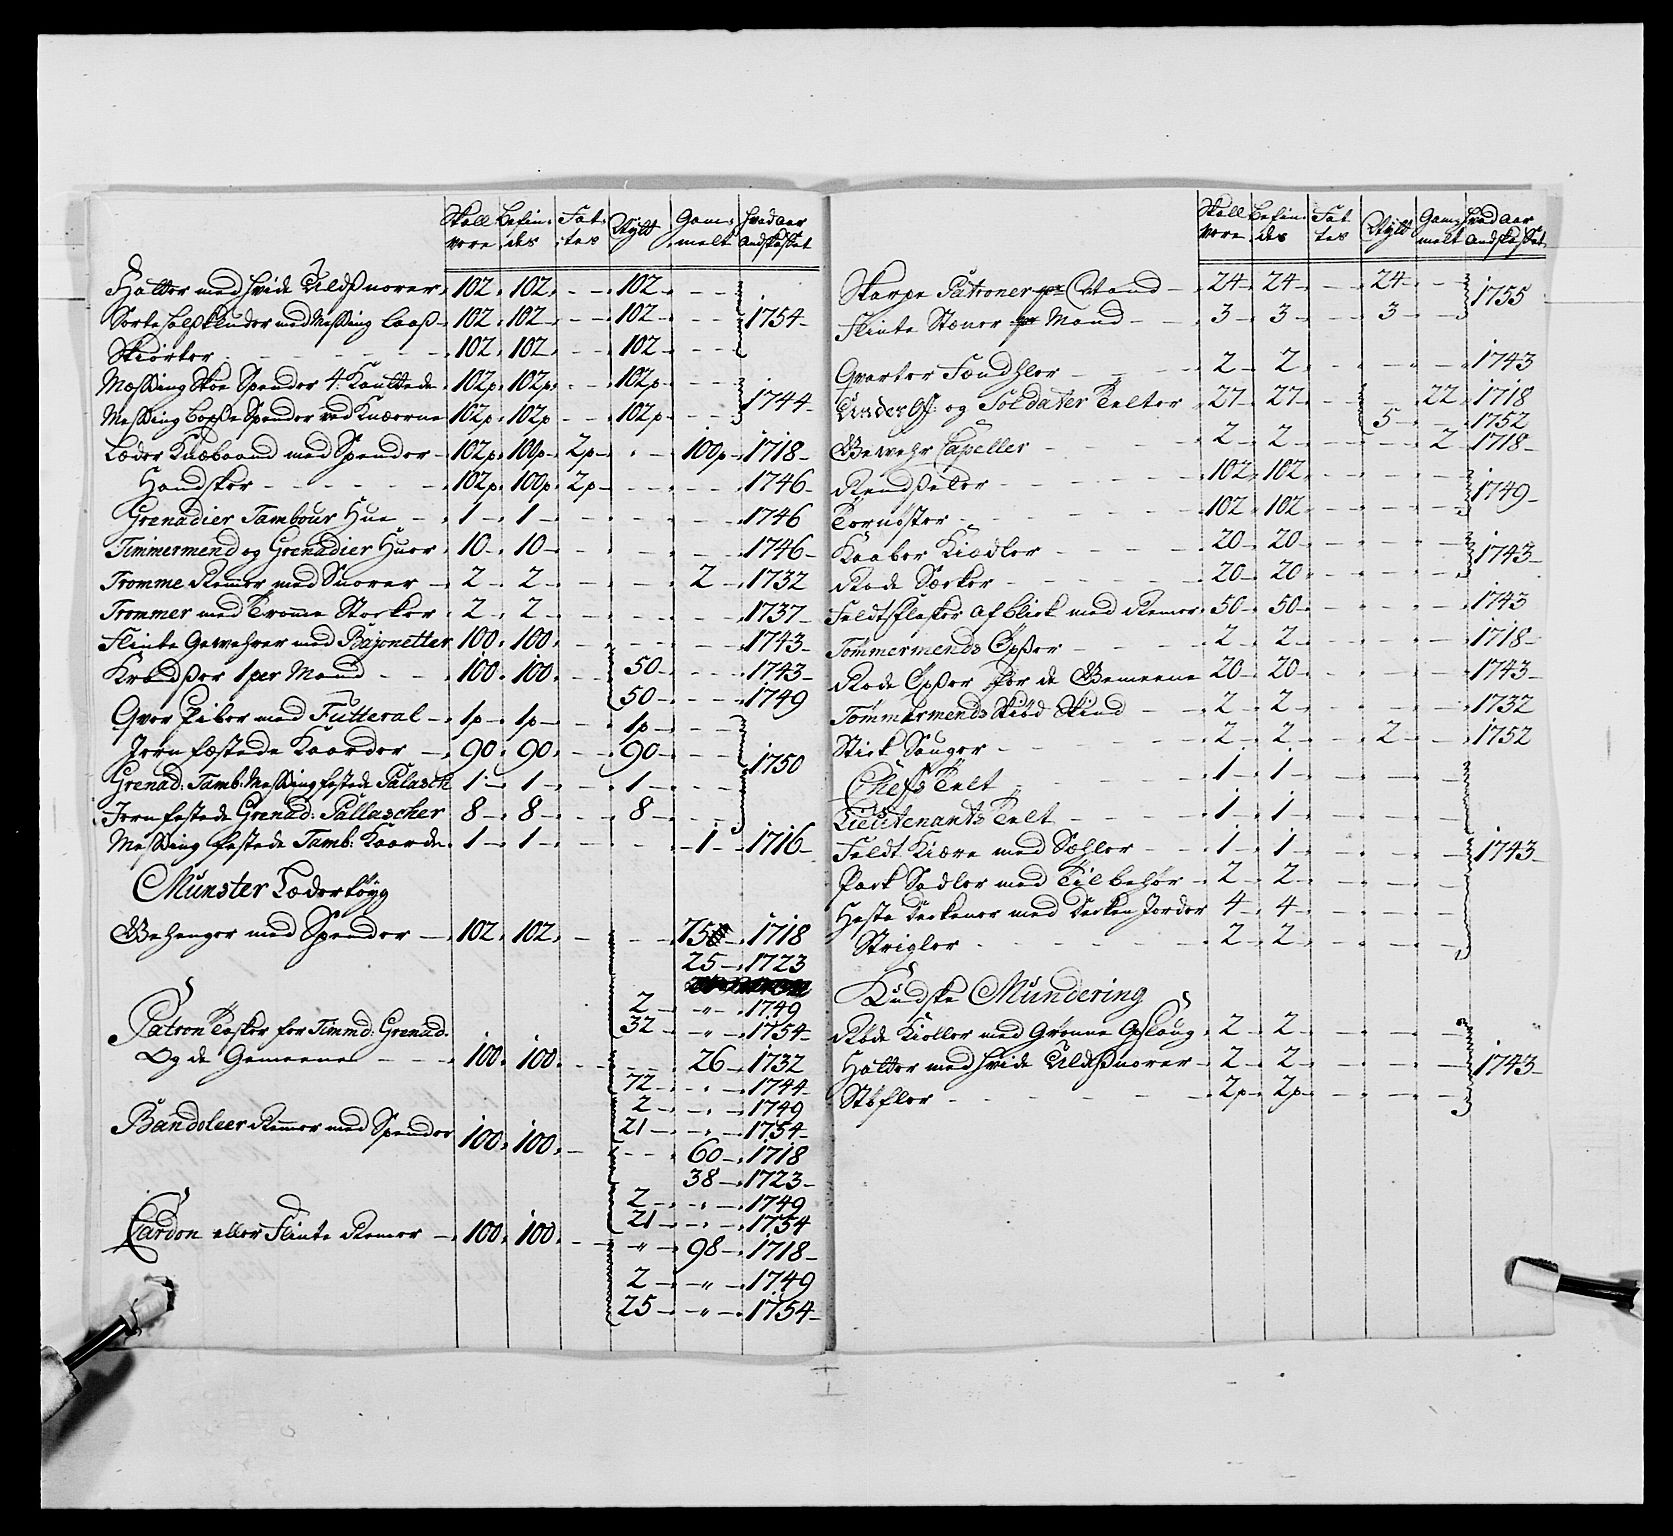 Skall Befin: Fat: Nytt Gam: Hvad aar
vere des tes melt andskaffet
Hatter med hvide Uldsnorer 102. 102. – 102 –
Sorte halskluder med Messing Laas 102. 102. – 102 – 1754
Skiorter 102. 102 – 102 –
Messing Skoe Spender 4: Kantede 102p. 102p. – 102p –
Messing Boxse Spender ved Knæerne 102p. 102p – 102p – 1744
Læder Knæbaand med Spender 102p. 100p. 2p – 100p 1718
Handsker 102p. 100p. 2p – 1746
Grenadier Tambour Hue 1 1 1746
Timmermend og Grenadier Huer 10 10 1746
Tromme Remer med Snorer 2 2 2 1732
Trommer med Tromme Stocker 2 2 1737
Flinte Gewehrer med Bajonetter 100. 100. 1743
Kradsser 1 per Mand 100. 100. 50 1743
50 1749
Qver Piber med Futteral 1p 1p 1p
Jern fæstede Kaarder 90. 90. 90
1750
Grenad: Tamb: Messing festede Palasch 1 1 1
Jern festede Grenad: Pallascher 8 8 8
Messing festede Tamb: Kaarde 1 1 1 1716
Munster Lædertöyg
Behenger med Spender 102. 102. 75 1718
25 1723
2 " 1749
32 " 1754
Patron Tasker for Timmd: Grenad:
og de Gemeene 100. 100. 26 1732
72 1744
2 1749
21 1754
Bandoleer Remer med Spender 100. 100. 60 1718
38 1723
2 1749
21 1754
Cardon eller Flinte Remer 100. 100. " 98 1718
2 " 1749
25 " 1754
Skall Befin: Fat Nytt Gam: Hvad aar
vere des tes melt andskaffet
Skarpe Patroner per Mand 24 24 24
1755
Flinte Steener per Mand 3 3 3
Qvarter 2 2 1743
Under Off: og Soldater Telter 27 27 22 1718
5 1752
Gewehr Capeller 2 2 2 1718
102 102
1749
Tornister 102 102
Kaaber Kiedler 20 20
1743
Rode Sæcker 20 20
Feldtflasker af Blick med Remer 50 50 1743
Tømmermends Öxser 2 2 1718
Rode Öxser for de Gemeene 20 20 1743
Tømmermends Skiød Skind 2 2 1732
Stick Sauger 2 2 2 1752
Chefs Telt 1 1
Lieutenants Telt 1 1
Feldt Kiære med Sehler 1 1 1743
Pack Sadler med Tilbehør 2 2
Heste Deckener med Decken Jorder 4 4
Strigler 2 2
Kudske Mundering
Røde Kioller med Grønne Opslaug 2 2
Hatter med hvide Uldsnorer 2 2 1743
Støfler 2p 2p